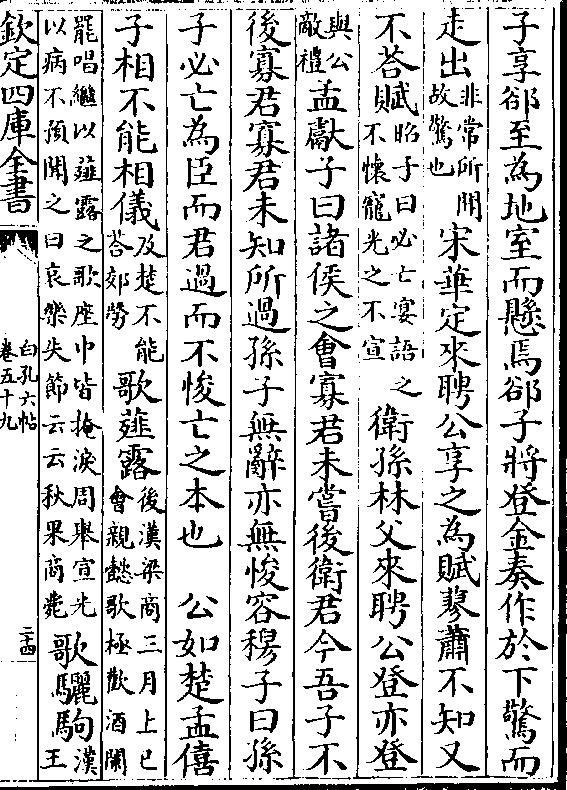 子享郤至為地室而懸焉郤子將登金奏作於下驚而
走出非常所聞故驚也宋華定來聘公享之為賦蓼蕭不知又
不荅賦昭子曰必亡宴語之不懷寵光之不宣衛孫林父來聘公登亦登
與公敵禮孟獻子曰諸侯之會寡君未嘗後衛君今吾子不
後寡君寡君未知所過孫子無辭亦無悛容穆子曰孫
子必亡為臣而君過而不悛亡之本也 公如楚孟僖
子相不能相儀及楚不能荅郊勞歌薤露後漢梁商三月上巳會親懿歌極歡酒闌
罷唱繼以薤露之歌座中皆掩淚周舉宣光以病不預聞之曰哀樂失節云云秋果商薨歌驪駒漢王
欽定四庫全書
白孔六帖
卷五十九
二十四